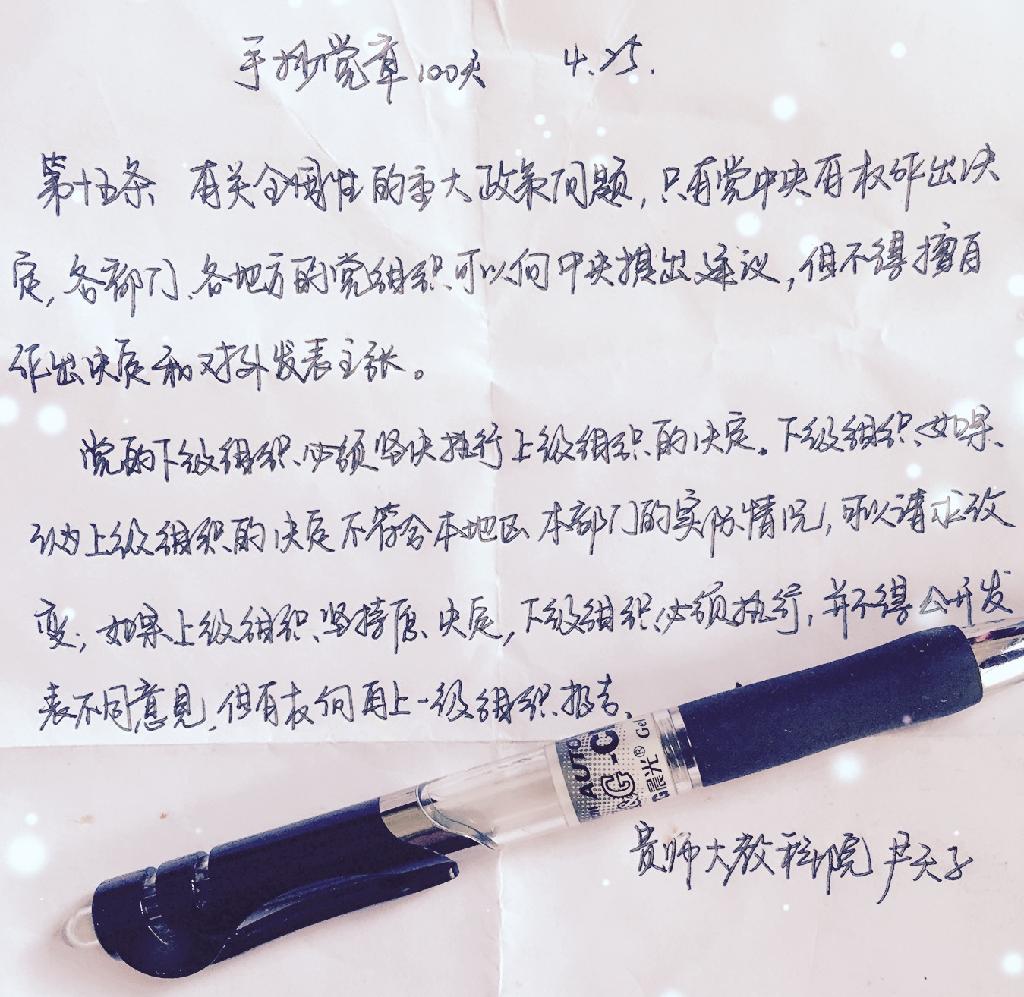 手抄党章100天 4.25.
第十五条 有关全国性的重大政策问题,只有党中央有权作出决
定,各部门、各地方的党组织可以向中央提出建议,但不得擅自
作出决定和对外发表主张。
党的下级组织必须坚决执行上级组织的决定。下级组织如果
认为上级组织的决定不符合本地区本部门的实际情况,可以请求改
变;如果上级组织坚持原决定,下级组织必须执行,并不得公开发
表不同意见,但有权向再上一级组织报告。
AUTO
G-
晨光® Gel
贵师大教科院 尹天子